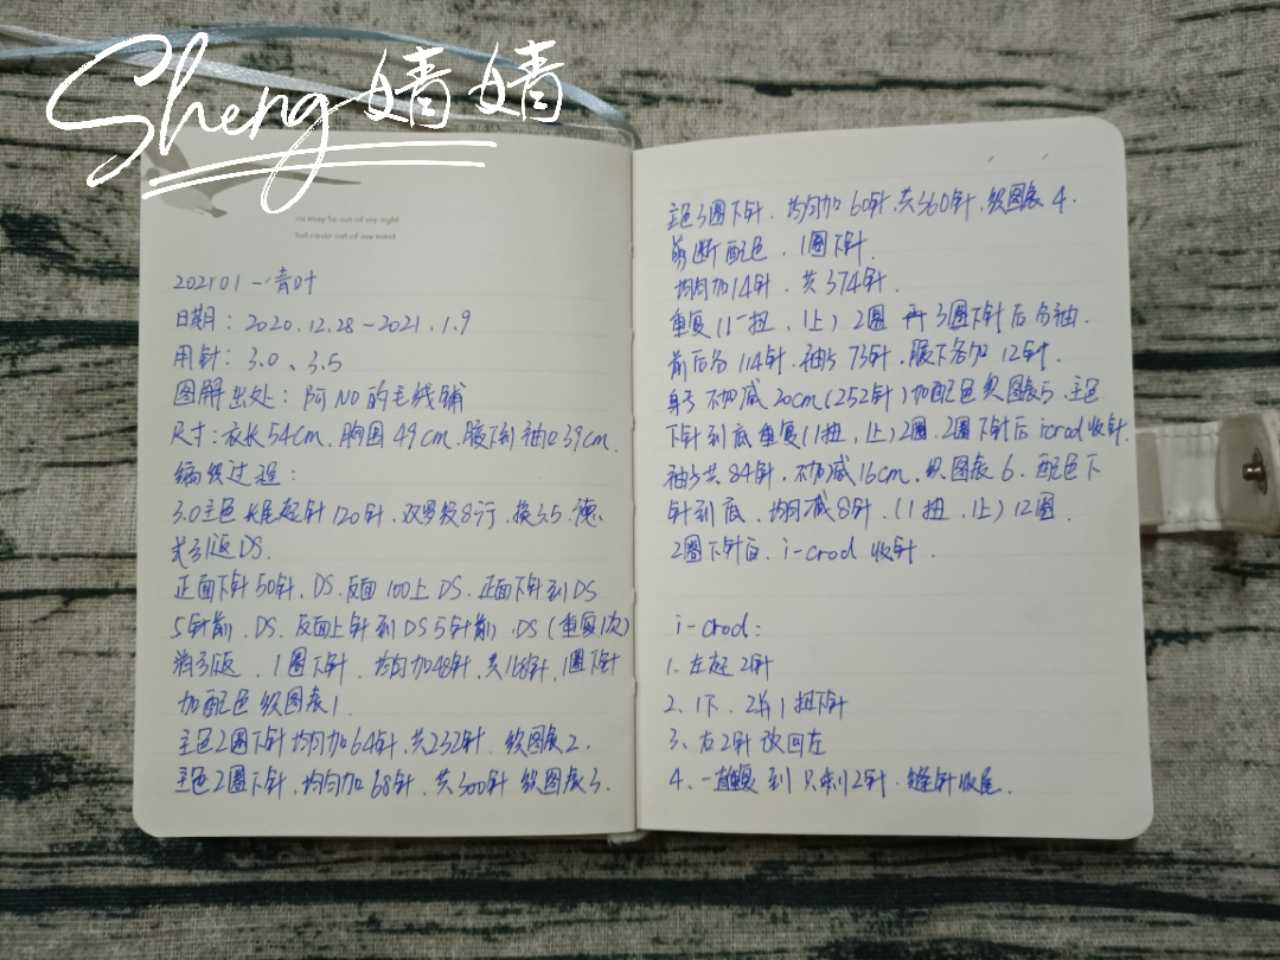 Sheng 婧婧
out of my sight
but never out of my mind
202101 一青叶
日期：2020.12.28-2021.1.9
用针：3.0、3.5
图解出处：阿NO的毛线铺
尺寸：衣长54cm.胸围49cm.腋下到袖口39cm.
编织过程：
3.0主色长尾起针120针.双罗纹8行.换3.5.德
式引返DS.
正面下针50针.DS.反面100上DS.正面下针到DS
5针前.DS.反面上针到DS5针前.DS(重复1次)
消引返.1圈下针.均匀加48针.共168针.1圈下针
加配色织图表1.
主色2圈下针均匀加64针.共232针.织图表2.
主色2圈下针.均匀加68针.共300针织图表3.
主色3圈下针.均匀加60针.共360针.织图表4.
剪断配色.1圈下针.
均匀加14针.共374针.
重复(1扭.1上)2圈再3圈下针后分袖.
前后各114针.袖子73针.腋下各加12针.
身子不加减20cm(252针)加配色织图表5.主色
下针到底重复(1扭,1上)2圈.2圈下针后icrod收针.
袖子共84针.不加减16cm.织图表6.配色下
针到底.均匀减8针.(1扭.1上)12圈.
2圈下针后.i-crod收针.
i-crod:
1.左起2针
2、1下.2并1扭下针
3、右2针改回左
4、一直重复到只剩2针.缝针收尾.